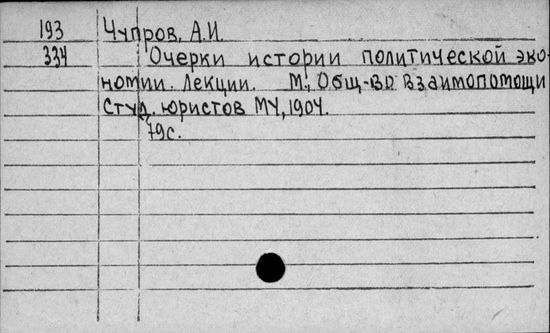 193 Чупров, А.И.
334 Очерки истории политической эко-
номии. Лекции. М., Общ-во взаимопомощи
студ. юристов МУ, 1904.
79с.